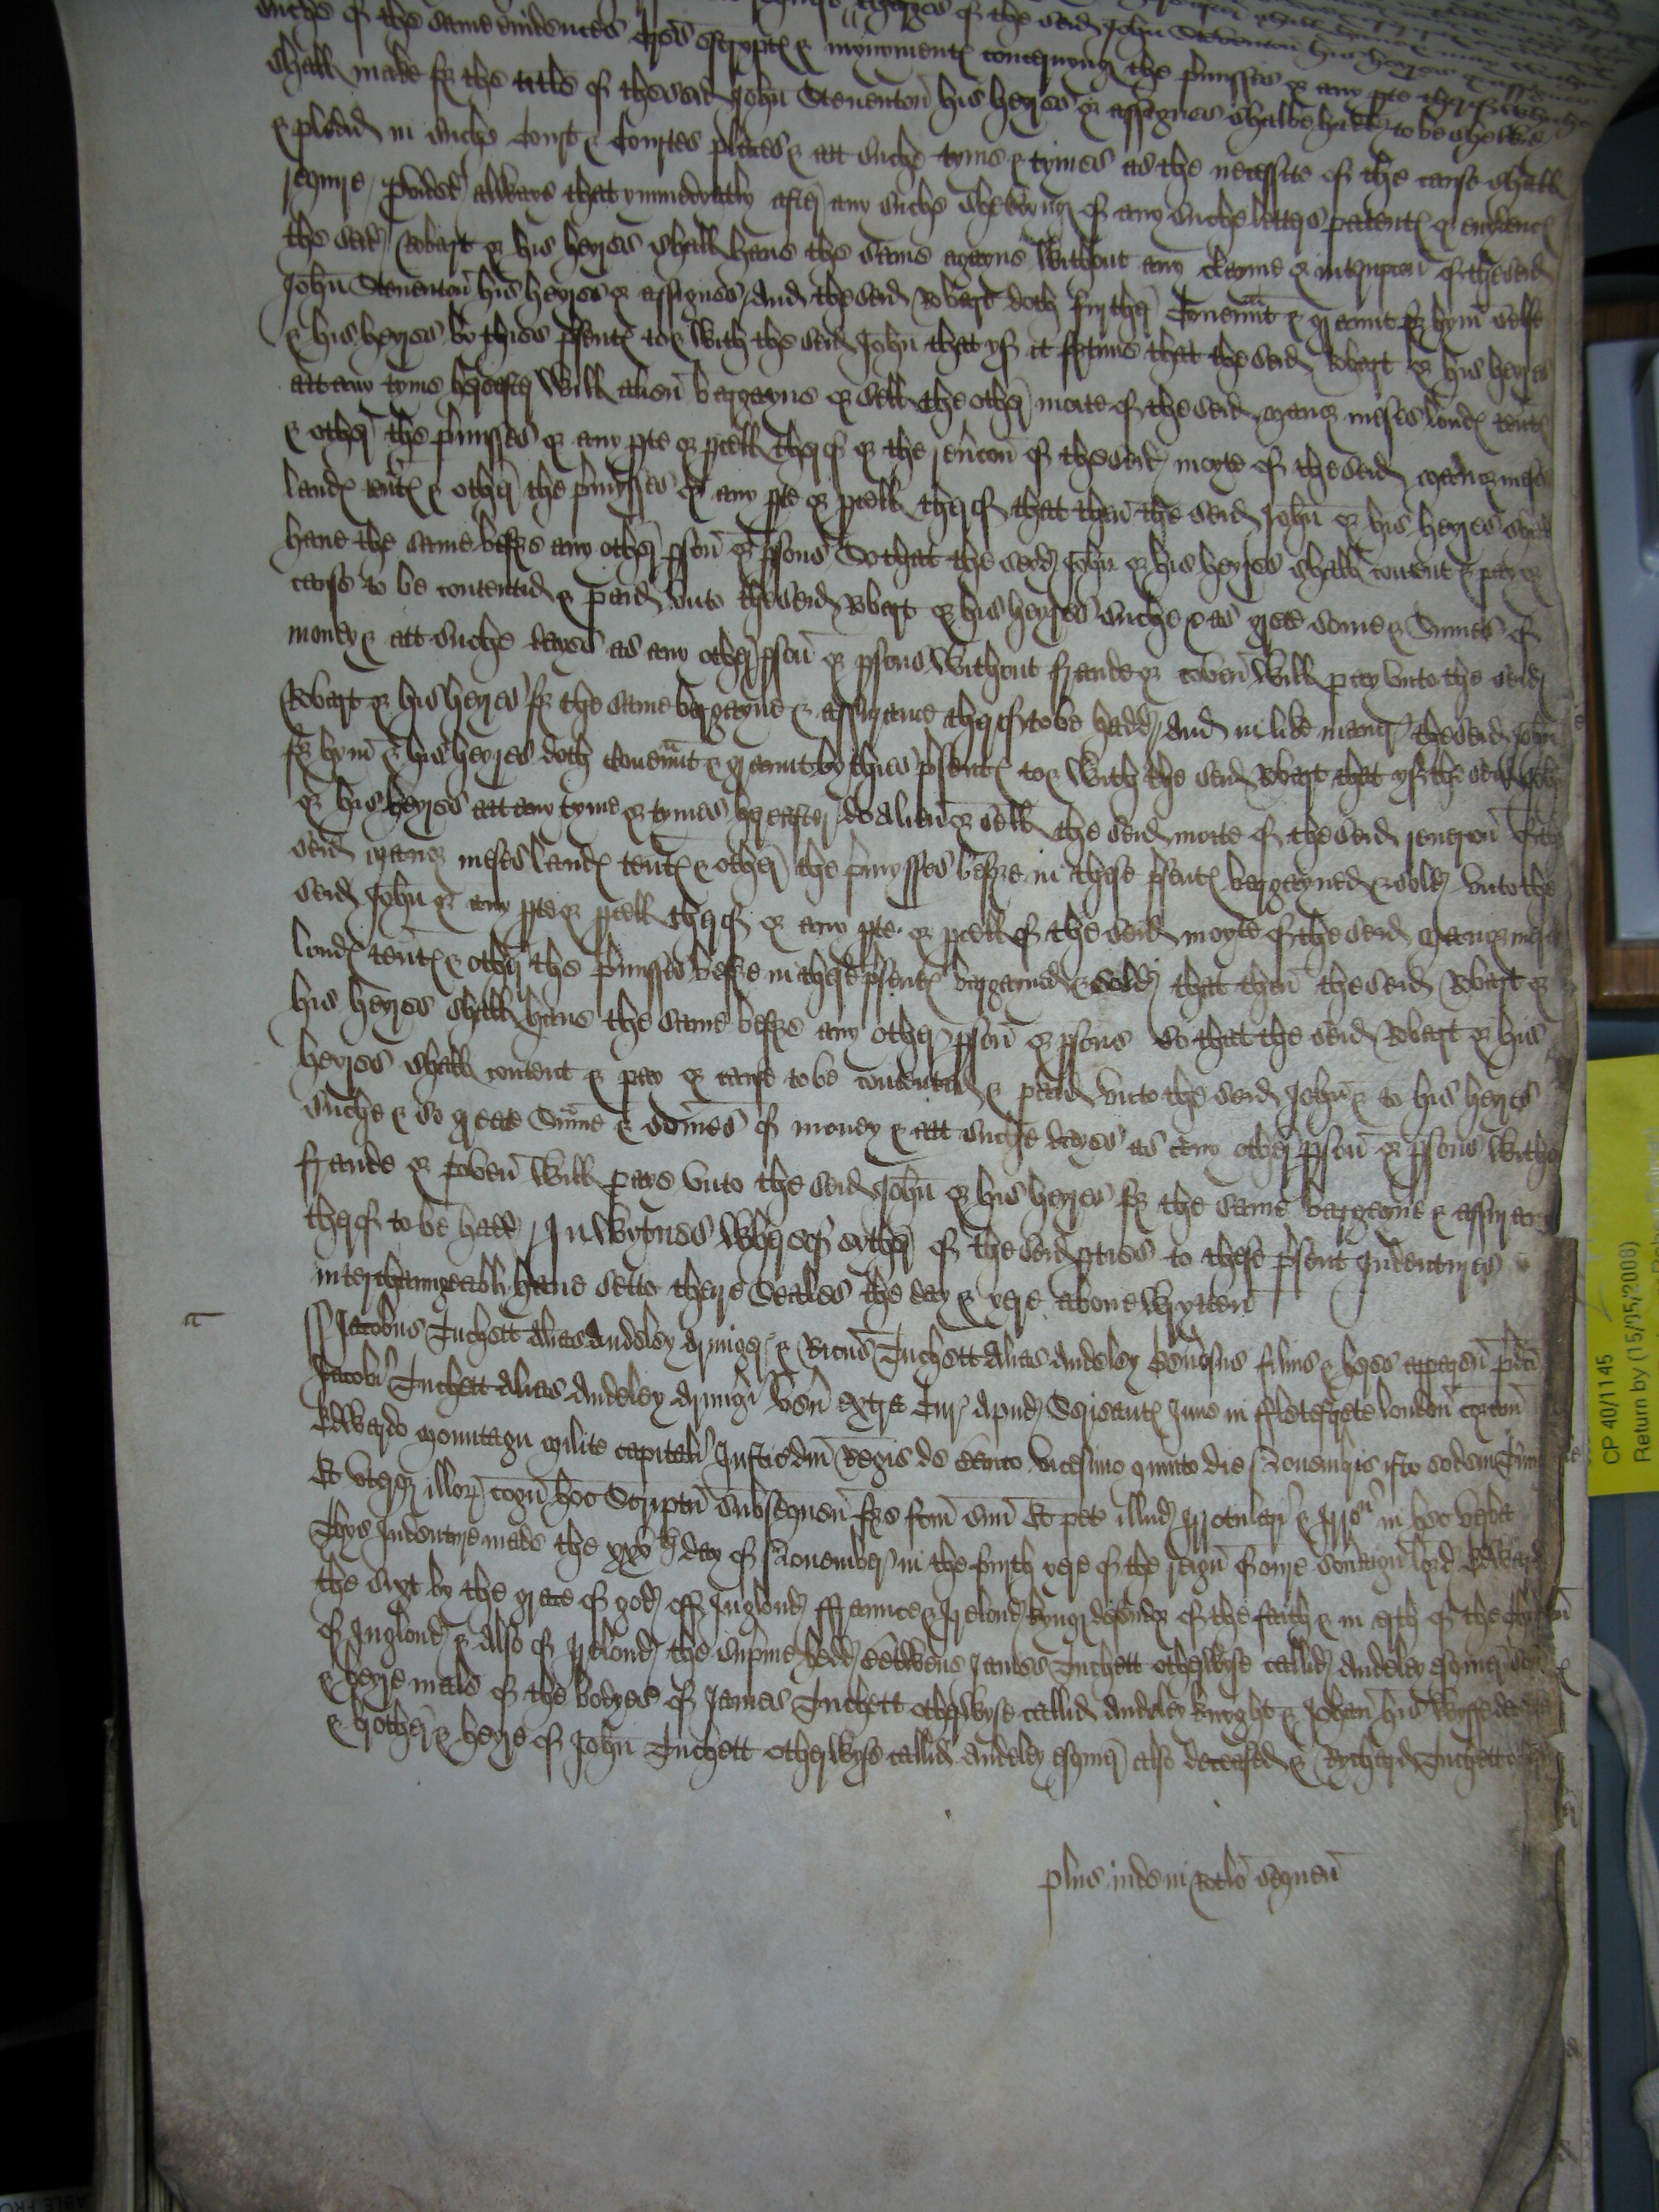 suche of the same evidences l̃res escrypts & mynyments concernyng the p̃misses or any p̱te therof whiche
shall make for the title of the seid John Steventon his heyres or assignes shalbe hadde to be shewed
& pledid in suche Court & Courtes places & att suche tyme & tymes as the necessite of the cause shall
requyre p̱vided allwaye that ymmedyatly after any suche shewyng of any suche letters patents & evidence
the seid Robert or his heyres shall have the same agayne without any clayme or interrupcon of the seid
John Steventon his heyres or assignes And the seid Robert doth further Covennt & graunt for hym self
& his heyres by thies p̃sents to & with the seid John that yf it fortune that the seid Robert or his heyres
att any tyme herafter will alien bargayne or sell the other moite of the seid manor meses londs tents
& other the p̃misses or any p̱te or p̱cell therof or the revercon of the seid moyte of the seid manor meses
lands tents & other the p̃mysses or any p̱te or p̱cell therof that then the seid John or his heyres shall
have the same before any other p̱son or p̱sons So that the seyd John or his heyres shall content & pay or
cause to be contentid & paid unto the seid Robert or his heyres suche & as grete some & Summes of
money & att suche dayes as any other p̱son or p̱sons without fraude or coven will pay unto the seid
Robert or his heyres for the same bargayne & assurance therof to be hadde And in like maner the seid John
for hym & his heyres doth Covennt & graunt by thies p̃sents to & with the seid Robert that yf the seid John
or his heyres att any tyme or tymes herafter do alien or sell the seid moite of the seid revercon of the
seid manor meses lands tents & other the p̃mysses before in these p̃sents bargayned & sold unto the
seid John or any p̱te or p̱cell therof or any p̱te or p̱cell of the seid moyte of the seid manor meses
londs tents & other the p̃misses before in these p̃sents bargayned & sold that then the seid Robert or
his heyres shall have the same before any other p̱son or p̱sons so that the seid Robert or his
heyres shall content & pay or cause to be contentid & paid unto the seid John & to his heyres
suche & so grete Summe & somes of money & att suche dayes as any other p̱son or p̱sons witho
fraude or coven will paye unto the seid John or his heyres for the same bargayne & assurance
therof to be hadd In Wytnes Wherof eyther of the seid p̱ties to these p̃sent Indentures
interchaungeably have sette theyre Seales the day & yere above wrytten
Jacobus Tuchett alias Audeley Armiger & Ricus Tuchett alias Audeley Gen̄osus filius & heres apparen p̃dc̄i
Jacobi Tuchett alias Audeley Armigi̇ ven extra Cur apud Serieants Inne in Fletestrete london coram
Edwardo Mountagu milite capitali Justic dn̄i Regis de Banco vicesimo quinto die Novembris isto eodem T̃mino
Et uterq illor cogn̄ hoc Scriptū subsequen fore fcm suū Et pet illud Irrotulari & Irrōr in hec verba
Thys Indenture made the xxvth day of November in the furth yere of the reign of oure sov̄aign lord Edward
the sixt by the grace of god off Inglond Fraunce & Irelond kyng defender of the faith & in erth of the churche
of Inglond & also of Irelond the supme hedd Betwene James Tuchett otherwyse callid Audeley esquier sone
& heyre male of the bodyes of James Tuchett otherwyse callid Audeley knyght & Johan his wyffe deceased
& brother & heyre of John Tuchett otherwyse callid Audeley esquier also deceased & Rychard Tuchett
plus inde in Rotlo sequen
CP 40/1145
Return by (15/05/2008)